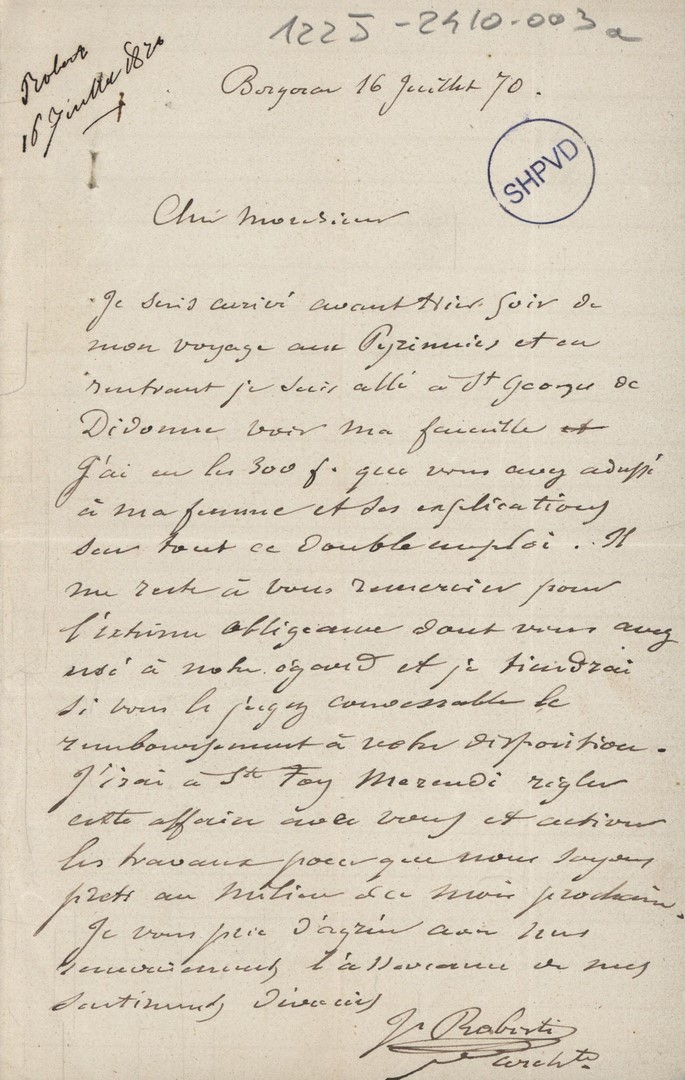 1225-2410-003a
Robert
16 Juillet 1870
Bergerac 16 Juillet 70.
SHPVD
Cher Monsieur
Je suis arrivé avant hier soir de
mon voyage aux Pyrinnées et en
rentrant je suis allé à St George de
Didonne voir ma famille et
J'ai eu les 300 f. que vous avez adressé
à ma femme et ses explications
sur tout ce double emploi. Il
me reste à vous remercier pour
l'extrême obligeance dont vous avez
usé à notre égard et je tiendrai
si vous le jugez convenable le
remboursement à votre disposition.
J'irai à Ste Foy Mercredi régler
cette affaire avec vous et activer
les travaux pour que nous soyons
prets au milieu de mois prochain.
Je vous prie d'agréer avec mes
remerciements l'assurance de mes
sentiments dévoués
archte